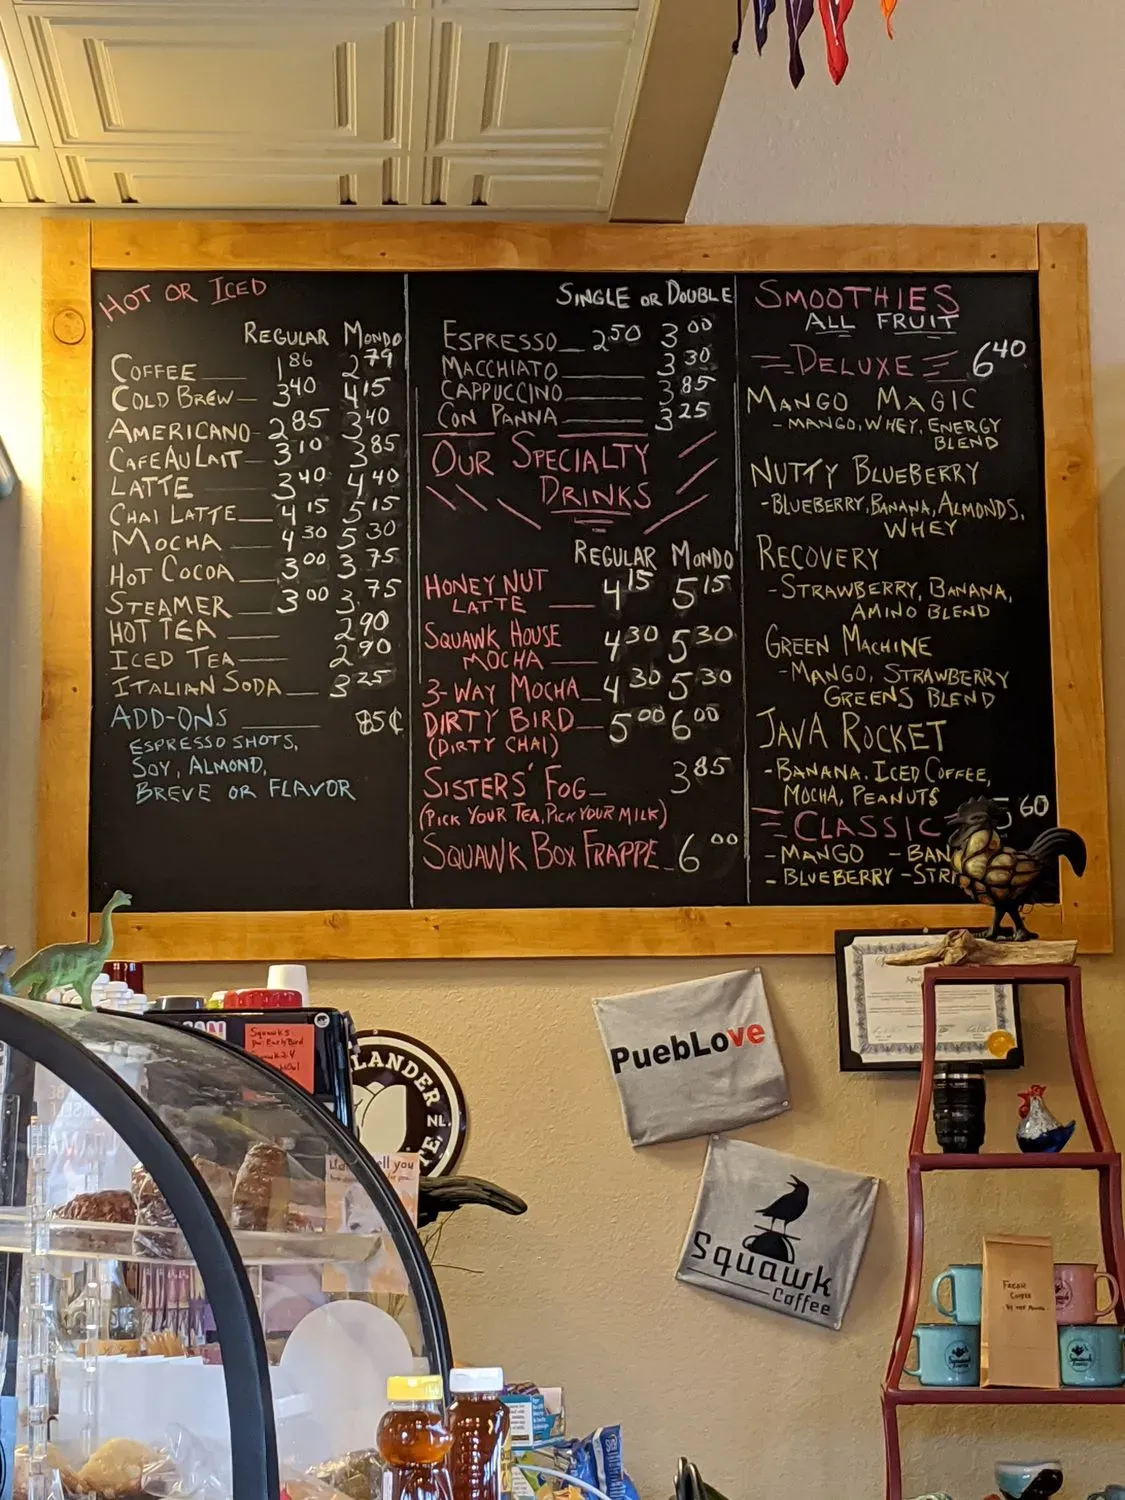 HOT OR ICED
REGULAR MONDO
COFFEE 1.86 2.79
COLD BREW 3.40 4.15
AMERICANO 2.85 3.40
CAFE AU LAIT 3.10 3.85
LATTE 3.40 4.40
CHAI LATTE 4.15 5.15
MOCHA 4.30 5.30
HOT COCOA 3.00 3.75
STEAMER 3.00 3.75
HOT TEA 2.90
ICED TEA 2.90
ITALIAN SODA 3.25
ADD-ONS 85¢
ESPRESSO SHOTS,
SOY, ALMOND,
BREVE OR FLAVOR
SINGLE OR DOUBLE
ESPRESSO 2.50 3.00
MACCHIATO 3.30
CAPPUCCINO 3.85
CON PANNA 3.25
OUR SPECIALTY
DRINKS
REGULAR MONDO
HONEY NUT
LATTE 4.15 5.15
SQUAWK HOUSE
MOCHA 4.30 5.30
3-WAY MOCHA 4.30 5.30
DIRTY BIRD 5.00 6.00
(DIRTY CHAI)
SISTERS' FOG 3.85
(PICK YOUR TEA, PICK YOUR MILK)
SQUAWK BOX FRAPPE 6.00
SMOOTHIES
ALL FRUIT
DELUXE 6.40
MANGO MAGIC
-MANGO, WHEY, ENERGY
BLEND
NUTTY BLUEBERRY
-BLUEBERRY, BANANA, ALMONDS,
WHEY
RECOVERY
-STRAWBERRY, BANANA,
AMINO BLEND
GREEN MACHINE
-MANGO, STRAWBERRY
GREENS BLEND
JAVA ROCKET
-BANANA, ICED COFFEE,
MOCHA, PEANUTS
CLASSIC 5.60
-MANGO -BAN
-BLUEBERRY -STR
PuebLove
Squawk
Coffee
LANDER
NL.